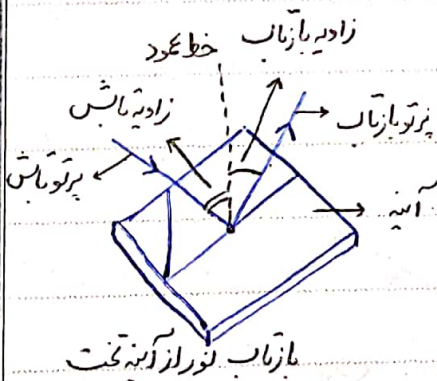 زاویه بازتاب
خط عمود
زاویه تابش
پرتو بازتاب
پرتو تابش
آینه
بازتاب نور از آینه تخت